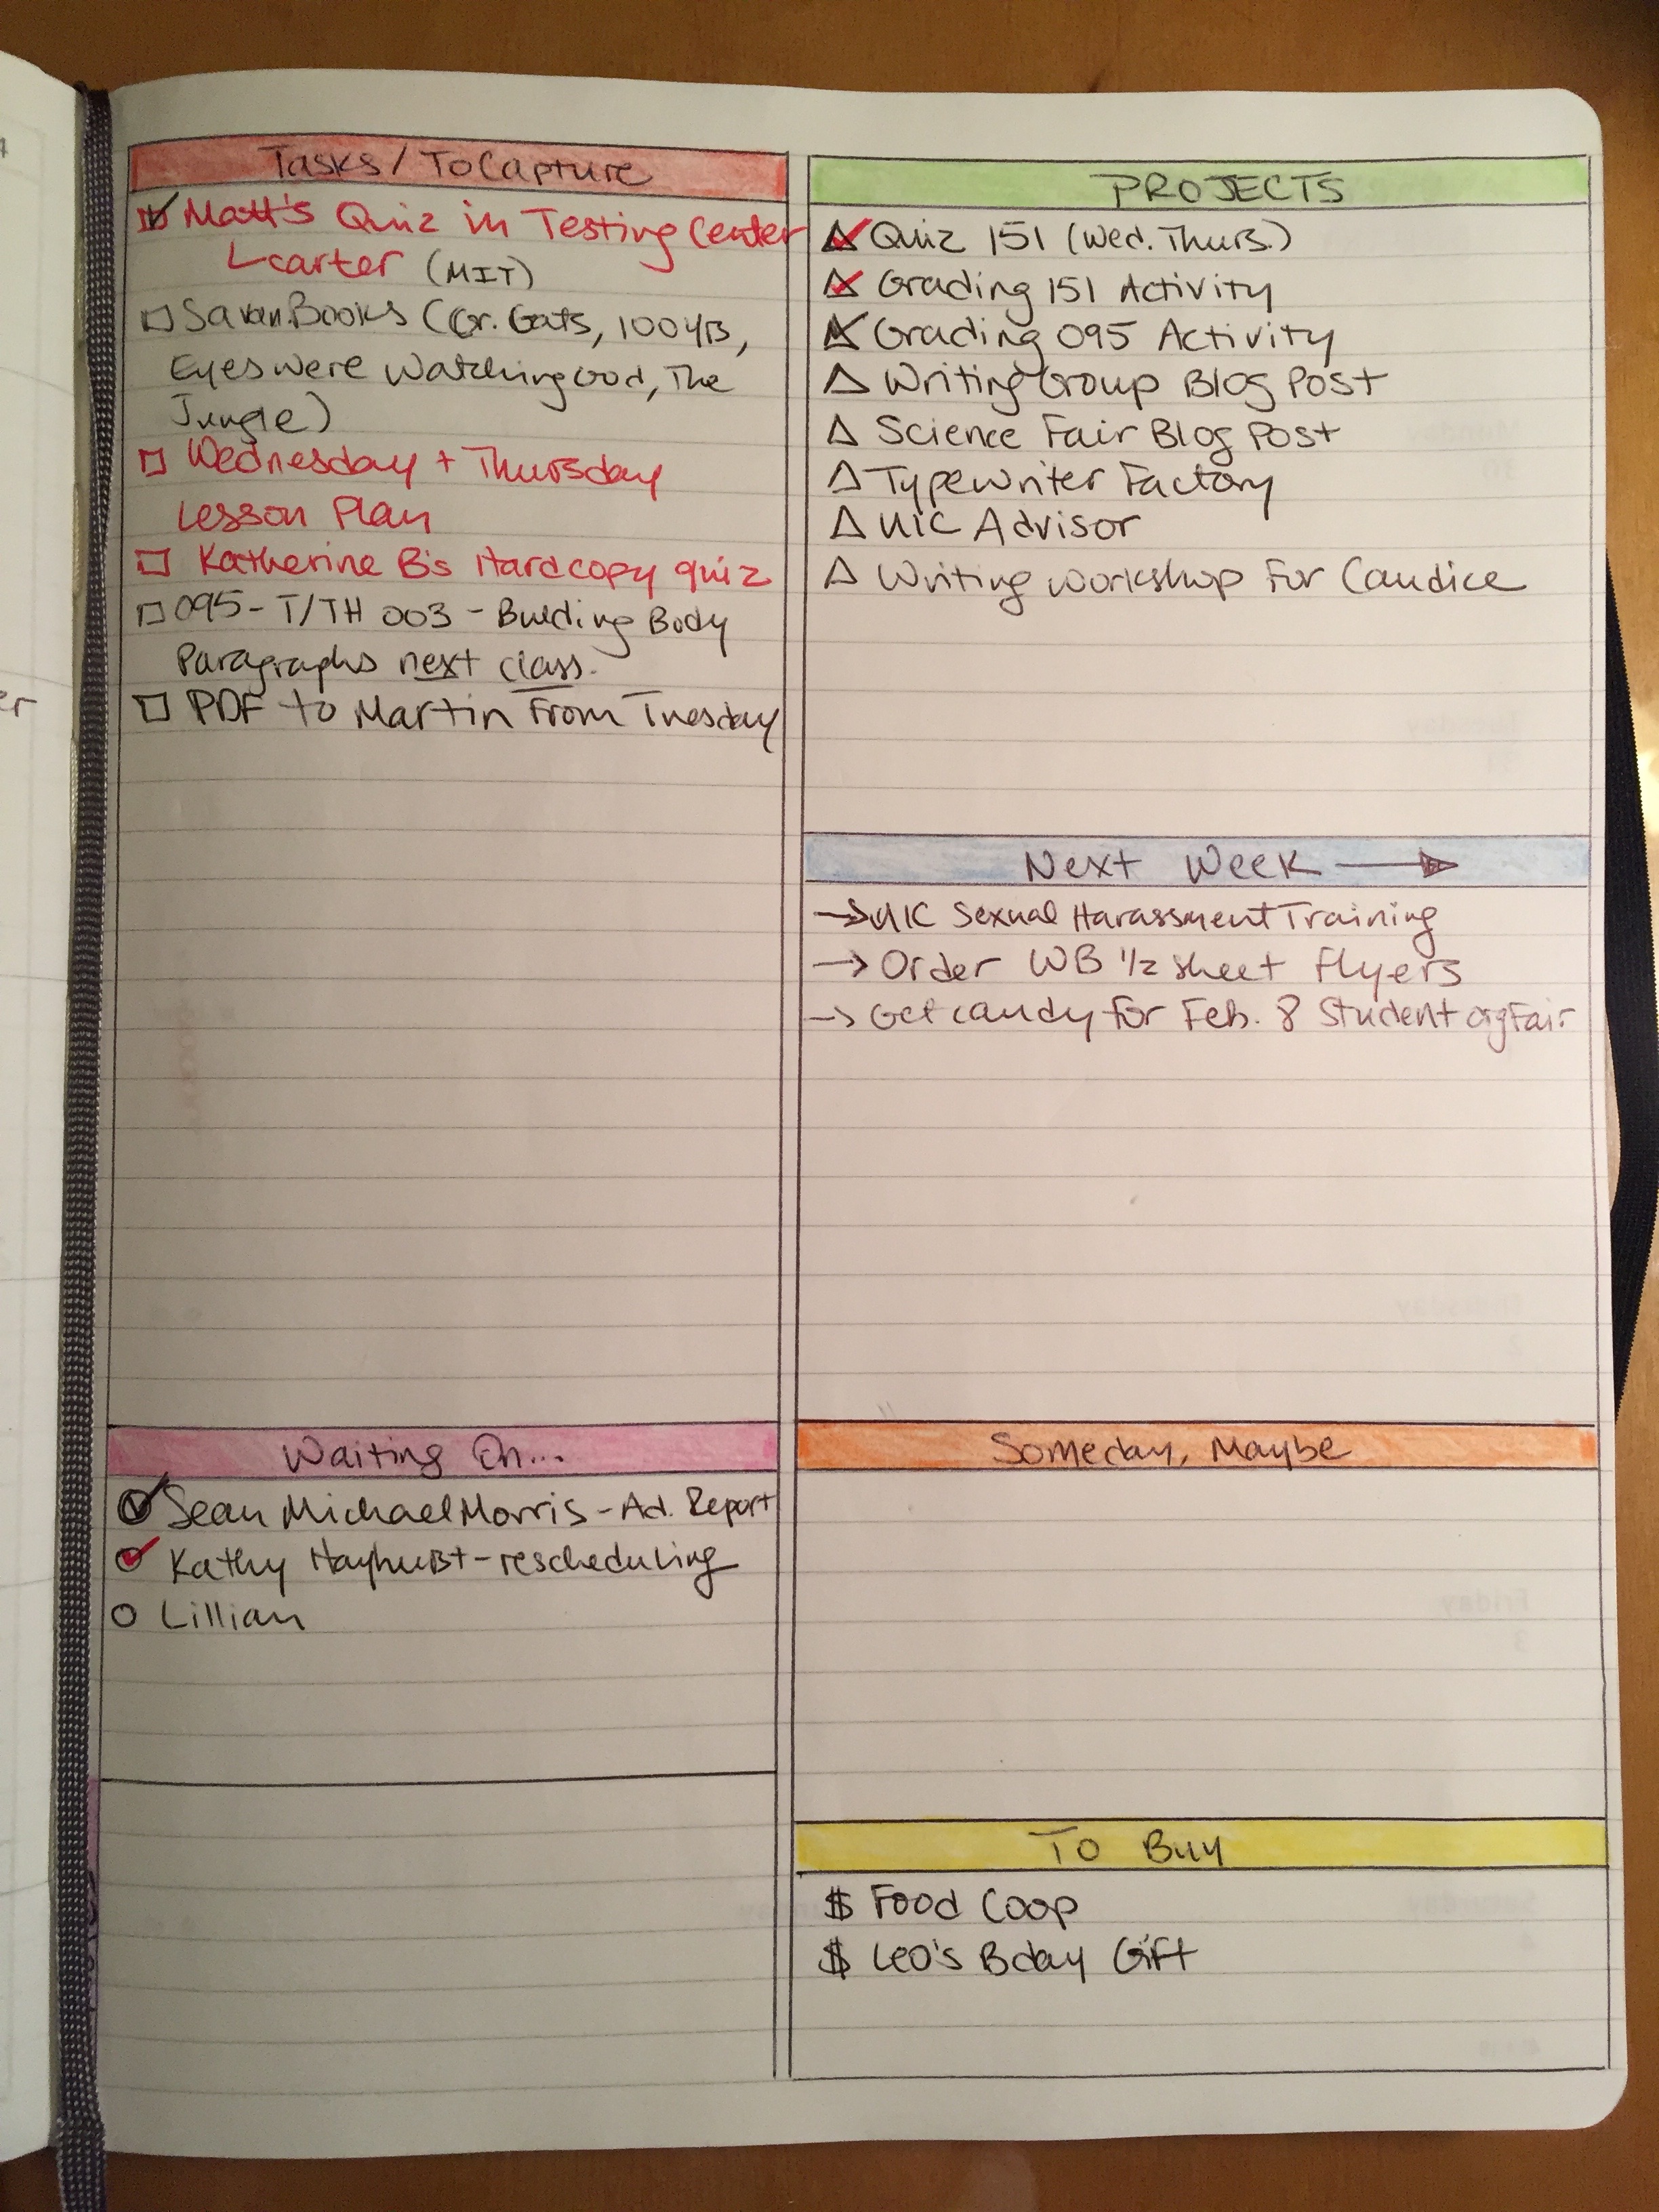 Tasks / To Capture
Matt's Quiz in Testing Center
Carter (MIT)
Books (Gr. Gats, 100 YB,
Eyes were Watching God, The
Jungle)
Wednesday + Thursday
Lesson Plan
Katherine B's Hardcopy quiz
095 - T/TH 003 - Building Body
Paragraphs next class.
PDF to Martin From Tuesday
Waiting On...
Sean Michael Morris - Ad. Report
Kathy - rescheduling
Lillian
PROJECTS
Quiz 151 (Wed. Thurs.)
Grading 151 Activity
Grading 095 Activity
Writing Group Blog Post
Science Fair Blog Post
Typewriter Factory
UIC Advisor
Writing workshop For Candice
Next Week →
→ UIC Sexual Harassment Training
→ Order WB 1/2 sheet Flyers
→ Get candy for Feb. 8 Student org Fair
Someday, Maybe
To Buy
$ Food Coop
$ Leo's Bday Gift